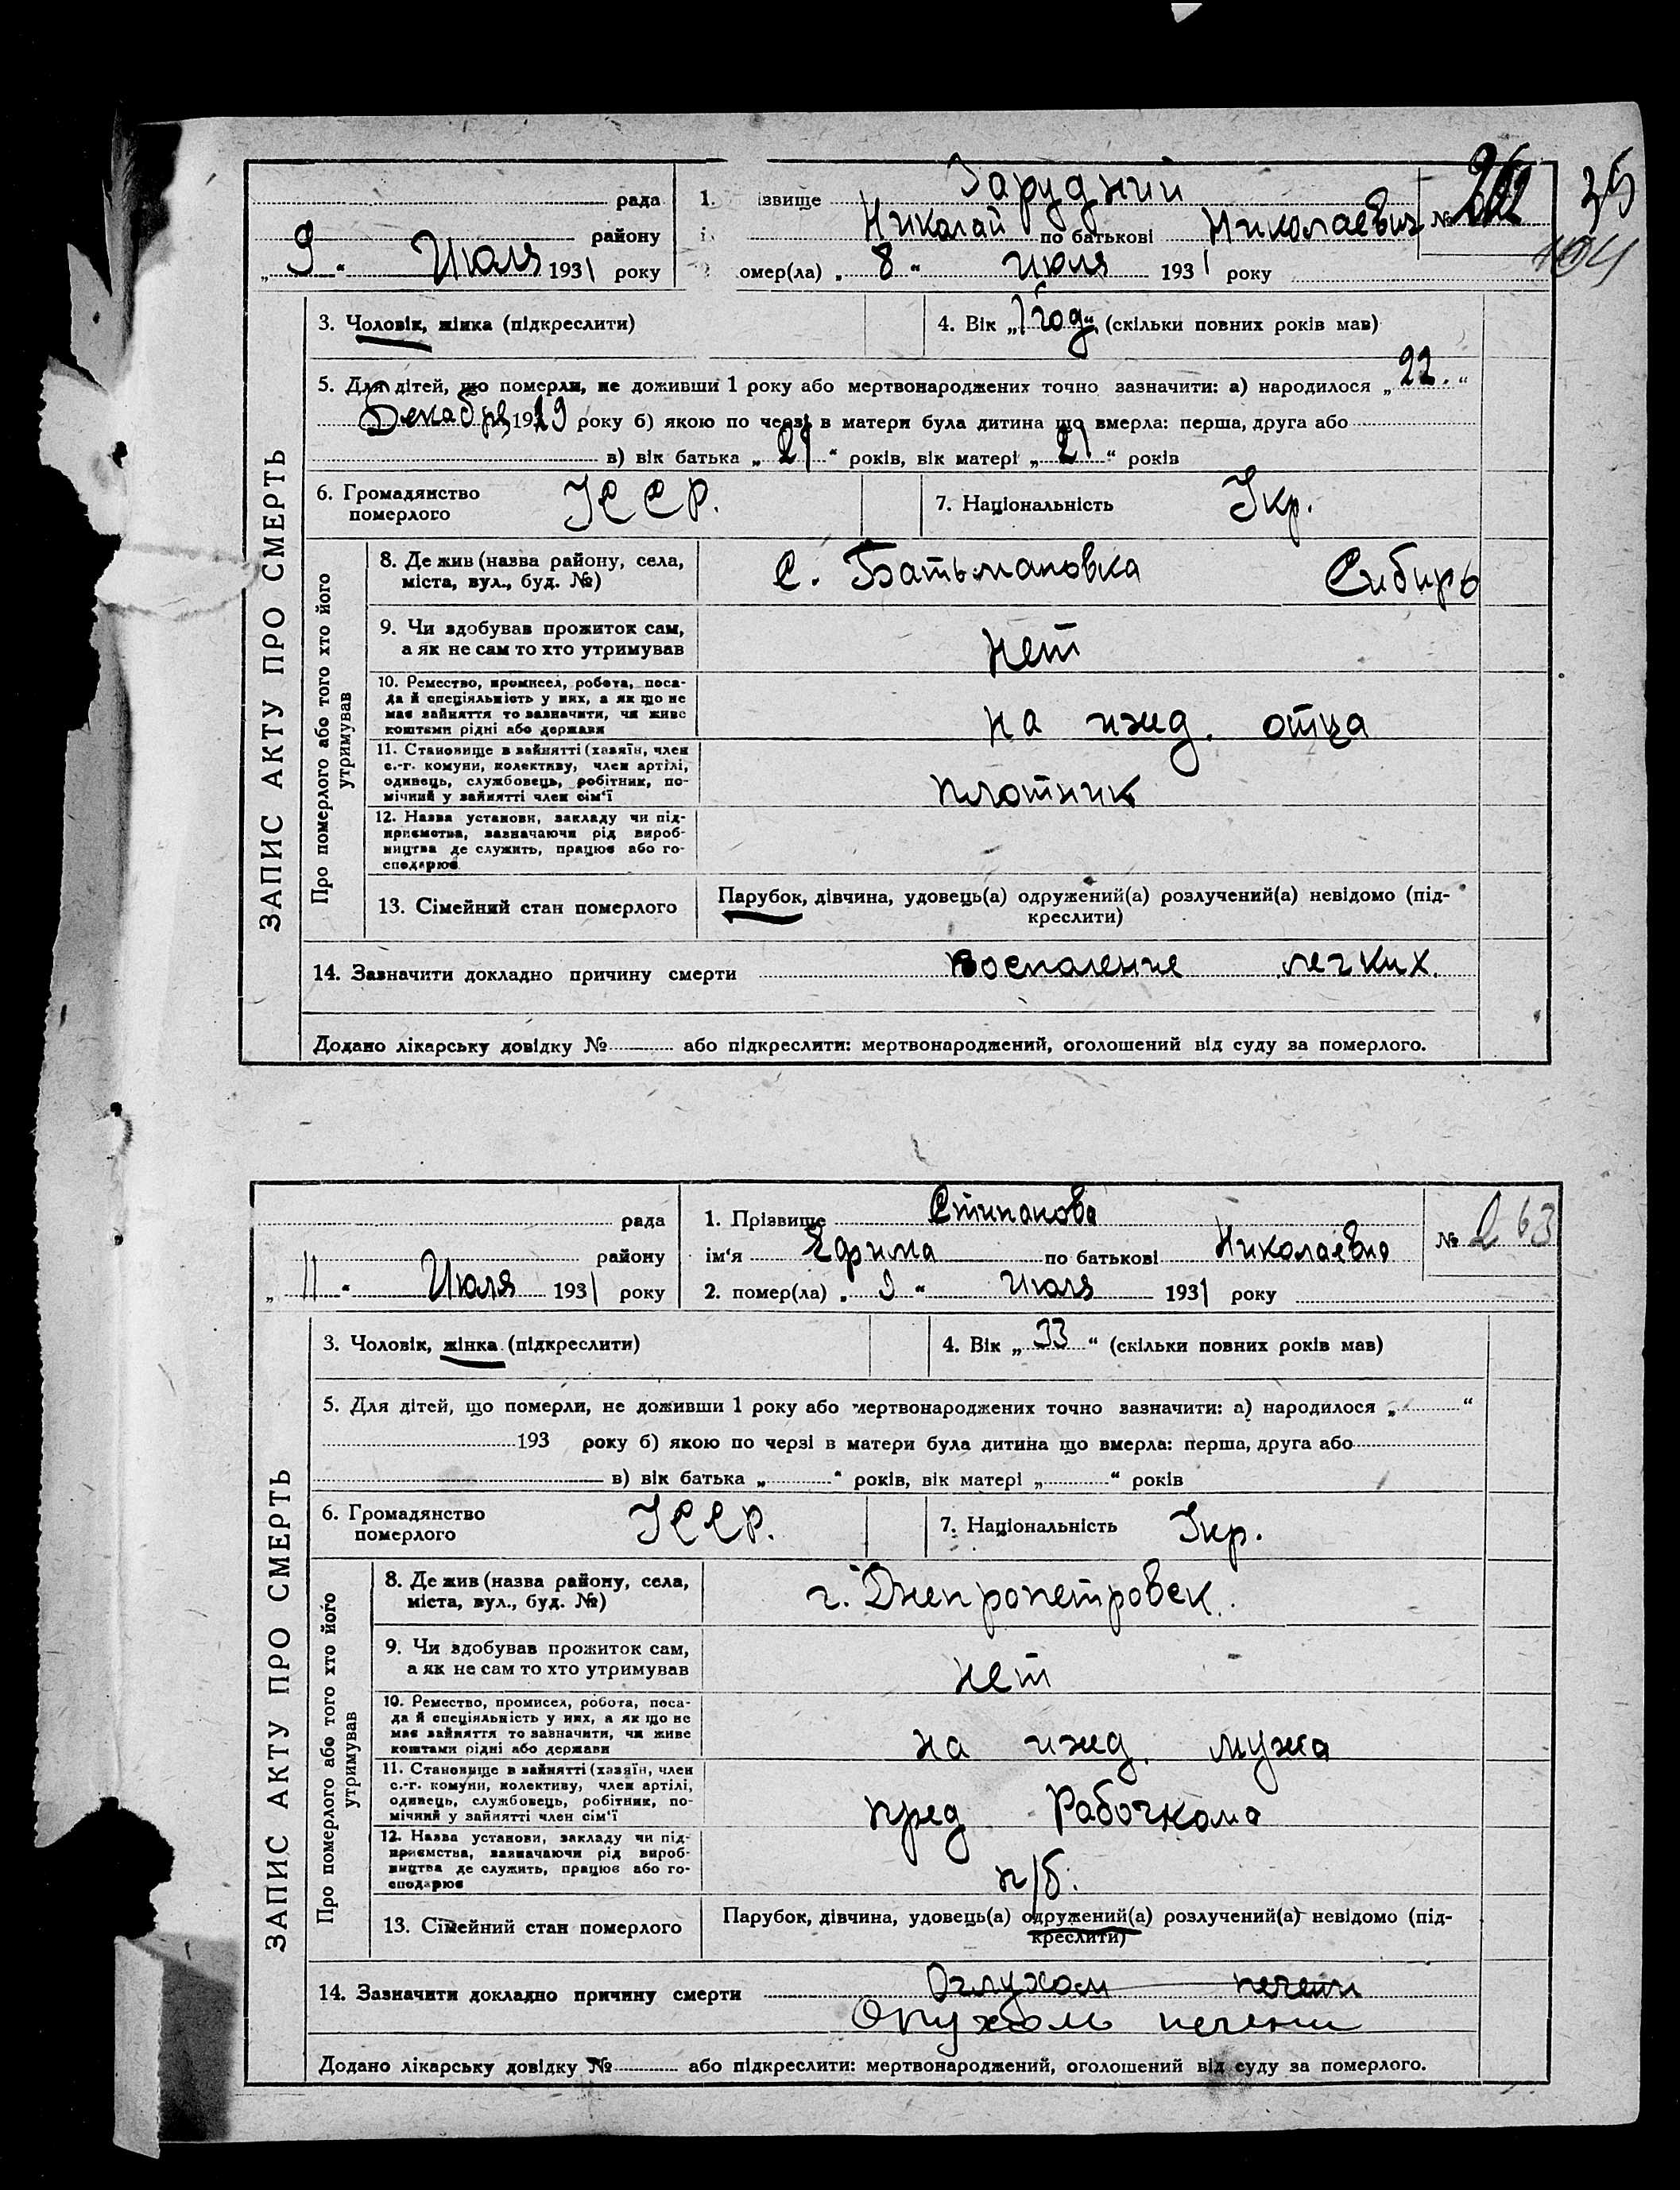 Заруднии
рада 1. звище
Николай по батькові Николаевич № 262 35
району і
„ 9 “ Июля 1931 року омер(ла) „ 8 “ июля 1931 року
3. Чоловік, жінка (підкреслити) 4. Вік „ 1 год “ (скільки повних років мав)
5. Для дітей, що померли, не доживши 1 року або мертвонароджених точно зазначити: а) народилося „ 22. “
Декабря 1929 року б) якою по черзі в матери була дитина що вмерла: перша, друга або
в) вік батька „ “ років, вік матері „ 21 “ років
6. Громадянство померлого УССР. 7. Національність Укр.
ЗАПИС АКТУ ПРО СМЕРТЬ
Про померлого або того хто його утримував
8. Де жив (назва району, села, С. Батьмановка Сибирь
міста, вул., буд. №)
9. Чи здобував прожиток сам, нет
а як не сам то хто утримував
10. Ремество, промисел, робота, поса-
да й спеціяльність у них, а як що не
має зайняття то зазначити, чи живе на ижд. отца
коштами рідні або держави
11. Становище в зайнятті (хазяїн, член
с.-г. комуни, колективу, член артілі,
одинець, службовець, робітник, по- плотник
мічний у зайнятті член сім'ї
12. Назва установи, закладу чи під-
приємства, зазначаючи рід вироб-
ництва де служить, працює або го-
сподарює
13. Сімейний стан померлого Парубок, дівчина, удовець(а) одружений(а) розлучений(а) невідомо (під-
креслити)
14. Зазначити докладно причину смерти воспаление легких.
Додано лікарську довідку № або підкреслити: мертвонароджений, оголошений від суду за померлого.
рада 1. Прізвище Стипанова
району ім'я Ефима по батькові Николаевна № 263
„ 11 “ Июля 1931 року 2. помер(ла) „ 9 “ июля 1931 року
3. Чоловік, жінка (підкреслити) 4. Вік „ 33 “ (скільки повних років мав)
5. Для дітей, що померли, не доживши 1 року або мертвонароджених точно зазначити: а) народилося „ “
193 року б) якою по черзі в матери була дитина що вмерла: перша, друга або
в) вік батька „ “ років, вік матері „ “ років
6. Громадянство померлого УССР. 7. Національність Укр.
ЗАПИС АКТУ ПРО СМЕРТЬ
Про померлого або того хто його утримував
8. Де жив (назва району, села, г. Днепропетровск.
міста, вул., буд. №)
9. Чи здобував прожиток сам, нет
а як не сам то хто утримував
10. Ремество, промисел, робота, поса-
да й спеціяльність у них, а як що не
має зайняття то зазначити, чи живе на ижд. мужа
коштами рідні або держави
11. Становище в зайнятті (хазяїн, член
с.-г. комуни, колективу, член артілі,
одинець, службовець, робітник, по- пред Рабочкома
мічний у зайнятті член сім'ї
12. Назва установи, закладу чи під-
приємства, зазначаючи рід вироб-
ництва де служить, працює або го- п/б.
сподарює
13. Сімейний стан померлого Парубок, дівчина, удовець(а) одружений(а) розлучений(а) невідомо (під-
креслити)
14. Зазначити докладно причину смерти печени
Опухоль печени
Додано лікарську довідку № або підкреслити: мертвонароджений, оголошений від суду за померлого.